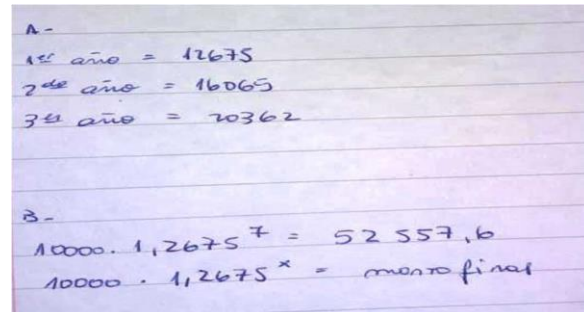 A-
1er año = 12675
2do año = 16065
3er año = 20362
B-
10000 . 1,2675^7 = 52 557,6
10000 . 1,2675^x = monto final